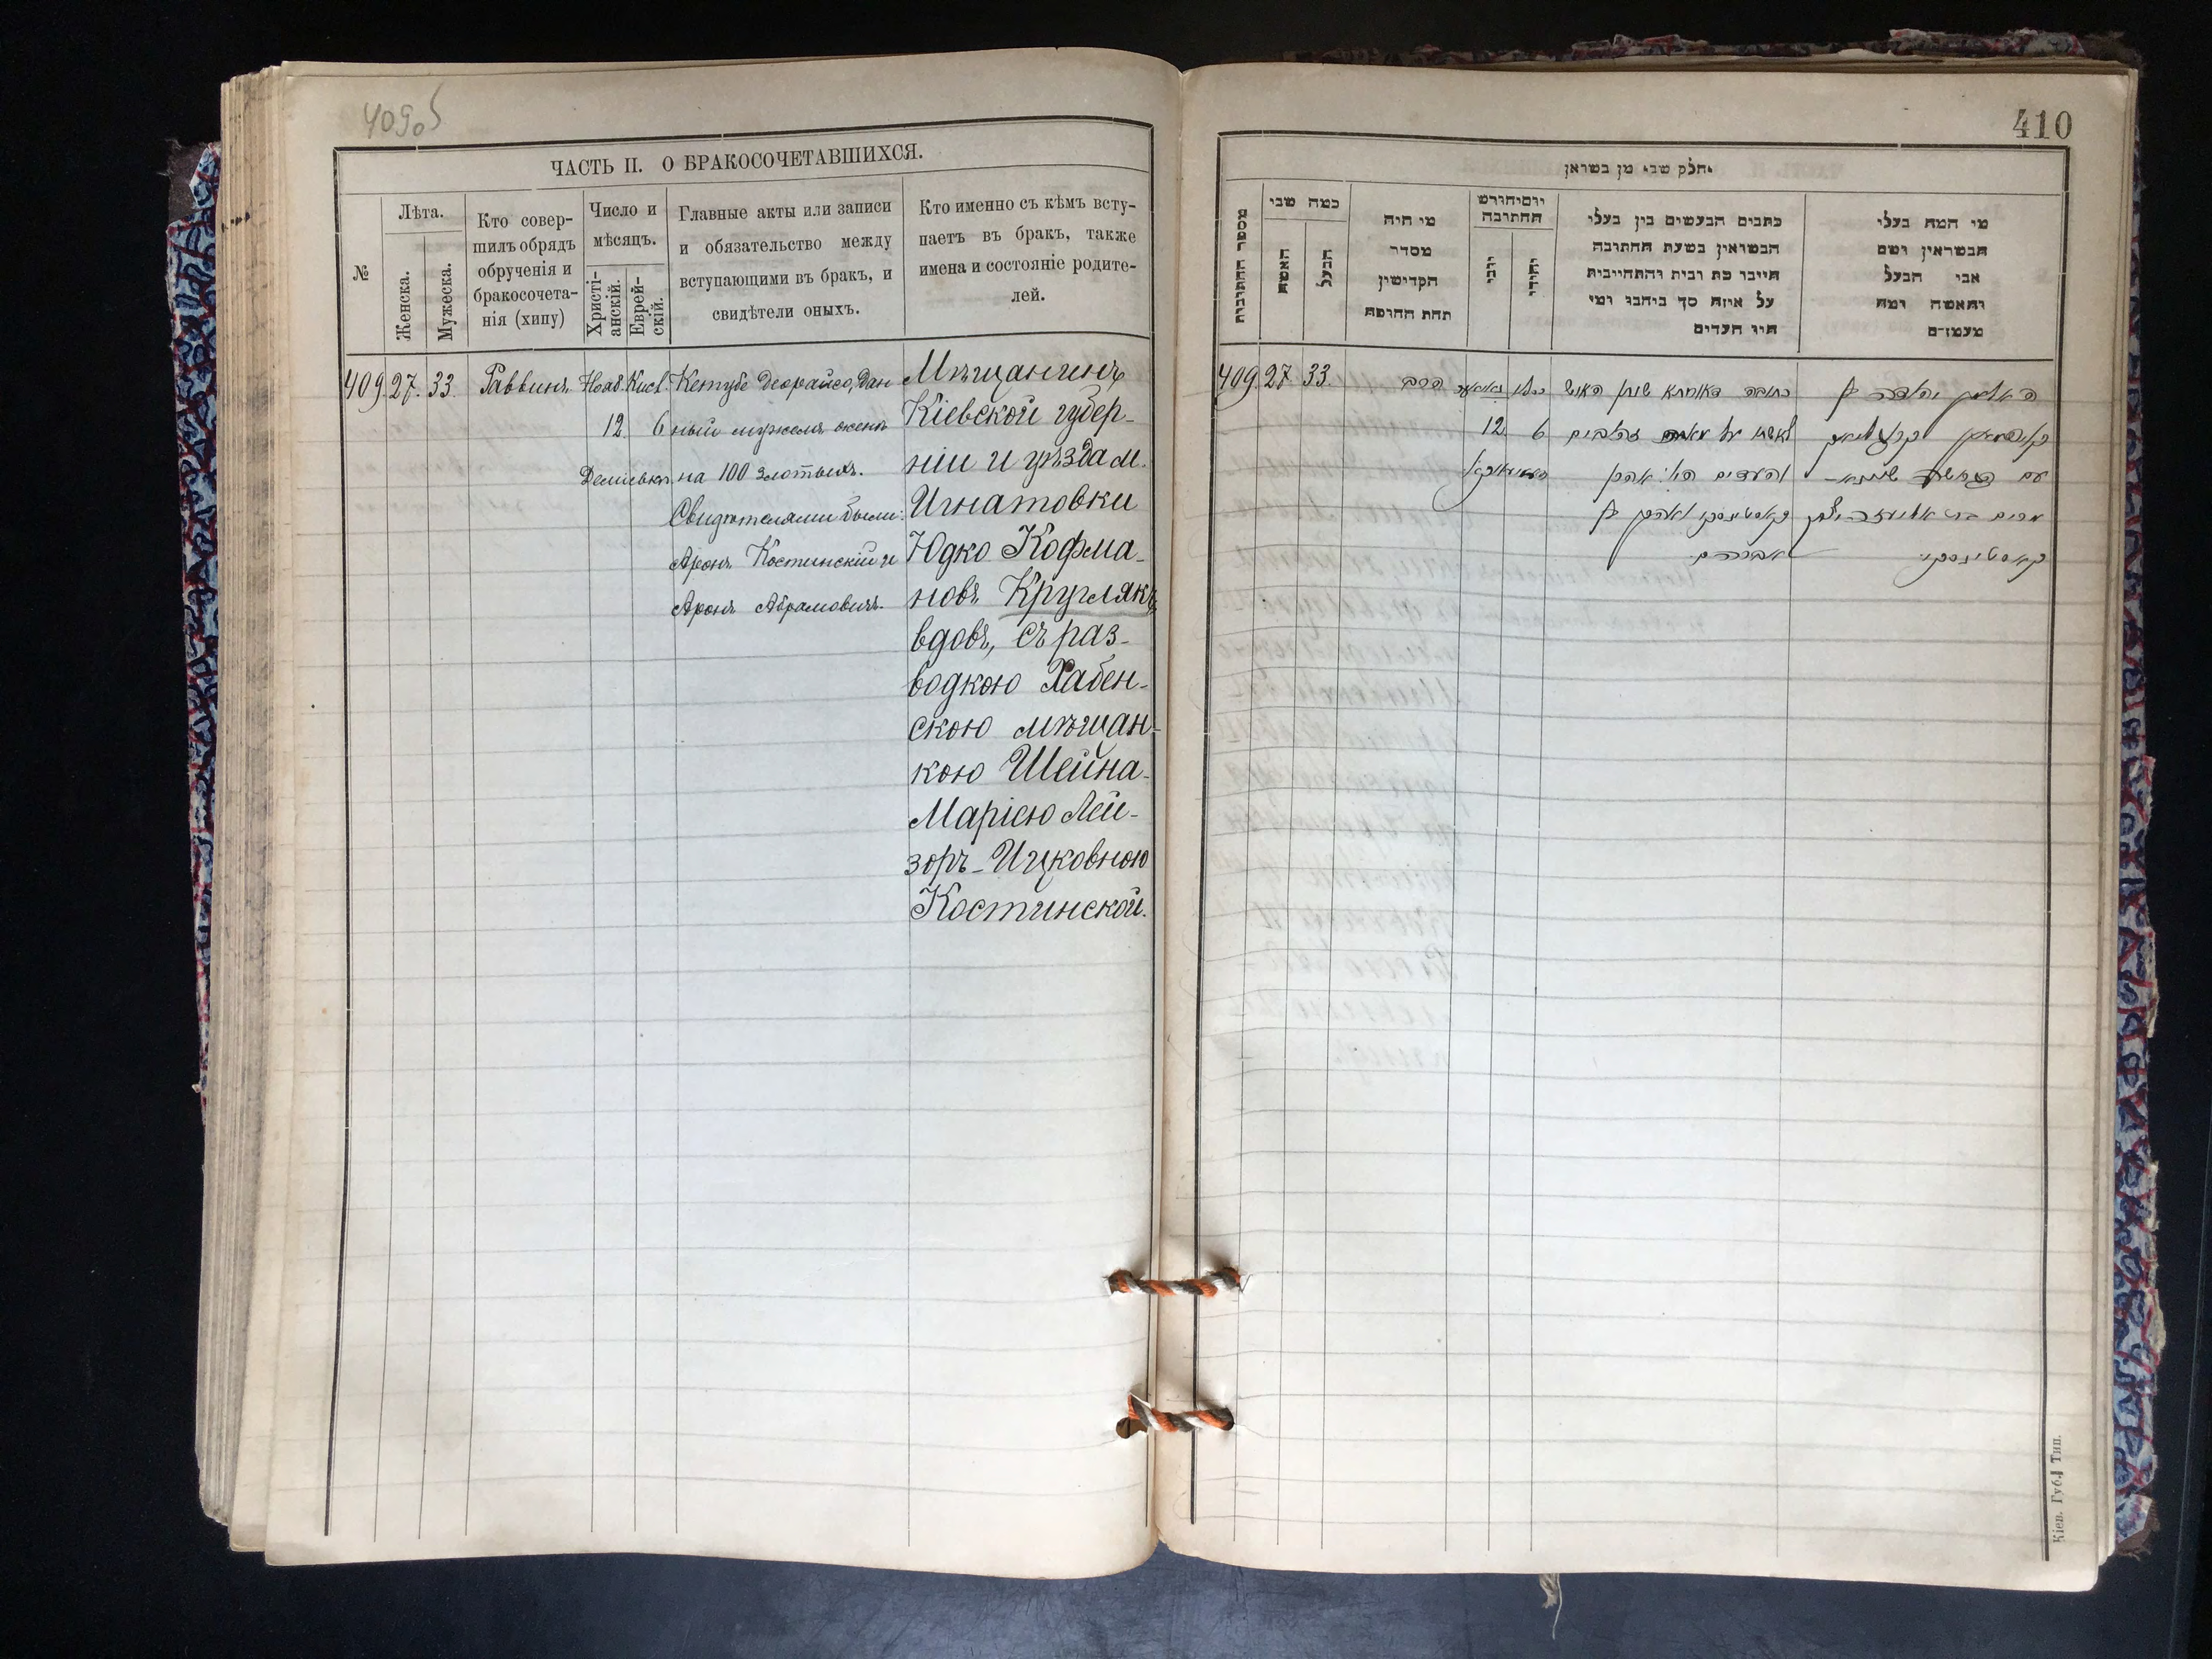 409об
ЧАСТЬ II. О БРАКОСОЧЕТАВШИХСЯ.
№
Лѣта.
Женска.
Мужеска.
Кто совер-
шилъ обрядъ
обрученія и
бракосочета-
нія (хипу)
Число и
мѣсяцъ.
Христі-
анскій.
Еврей-
скій.
Главные акты или записи
и обязательство между
вступающими въ бракъ, и
свидѣтели оныхъ.
Кто именно съ кѣмъ всту-
паетъ въ бракъ, также
имена и состояніе родите-
лей.
409. 27. 33.
Раввинъ.
Нояб. Кисл.
12 6
Демievка
Кетубе Деорайсо, Дан
ный мужемъ женѣ
на 100 злотыхъ.
Свидѣтелями были:
Аронъ Костинскій и
Аронъ Абрамовичъ.
Мѣщанинъ
Кіевской губер-
ніи и уѣзда м.
Игнатовки
Юдко Кофма-
новъ Круглякъ,
вдовъ, съ раз-
водкою Хабен-
скою мѣщан-
кою Шейна-
Маріею Лей-
зоръ-Ицковною
Костинской.
410
חלק שני מן בשואן
מספר החתונות
כמה שני
האשה
הבעל
מי היה
מסדר
הקדישין
תחת החופה
יום וחורש
החתונה
נוצרי
יהודי
כתבים הנעשים בין בעלי
הנשואין בשעת החתונה
היינו כת ובית והתחייבות
על איזה סך ביחבו ומי
היו העדים
מי המה בעלי
הנשואין ושם
אבי הבעל
והאשה ומה
מעמדם
409 27 33.
הרב
12. 6
כתובה דאורתא שנתן האיש
לאשתו על מאה זהובים
והעדים הא' אהרן
קאסטינסקי ואהרן בן
אברהם
קאסטינסקי
Кіев. Губ. Тип.